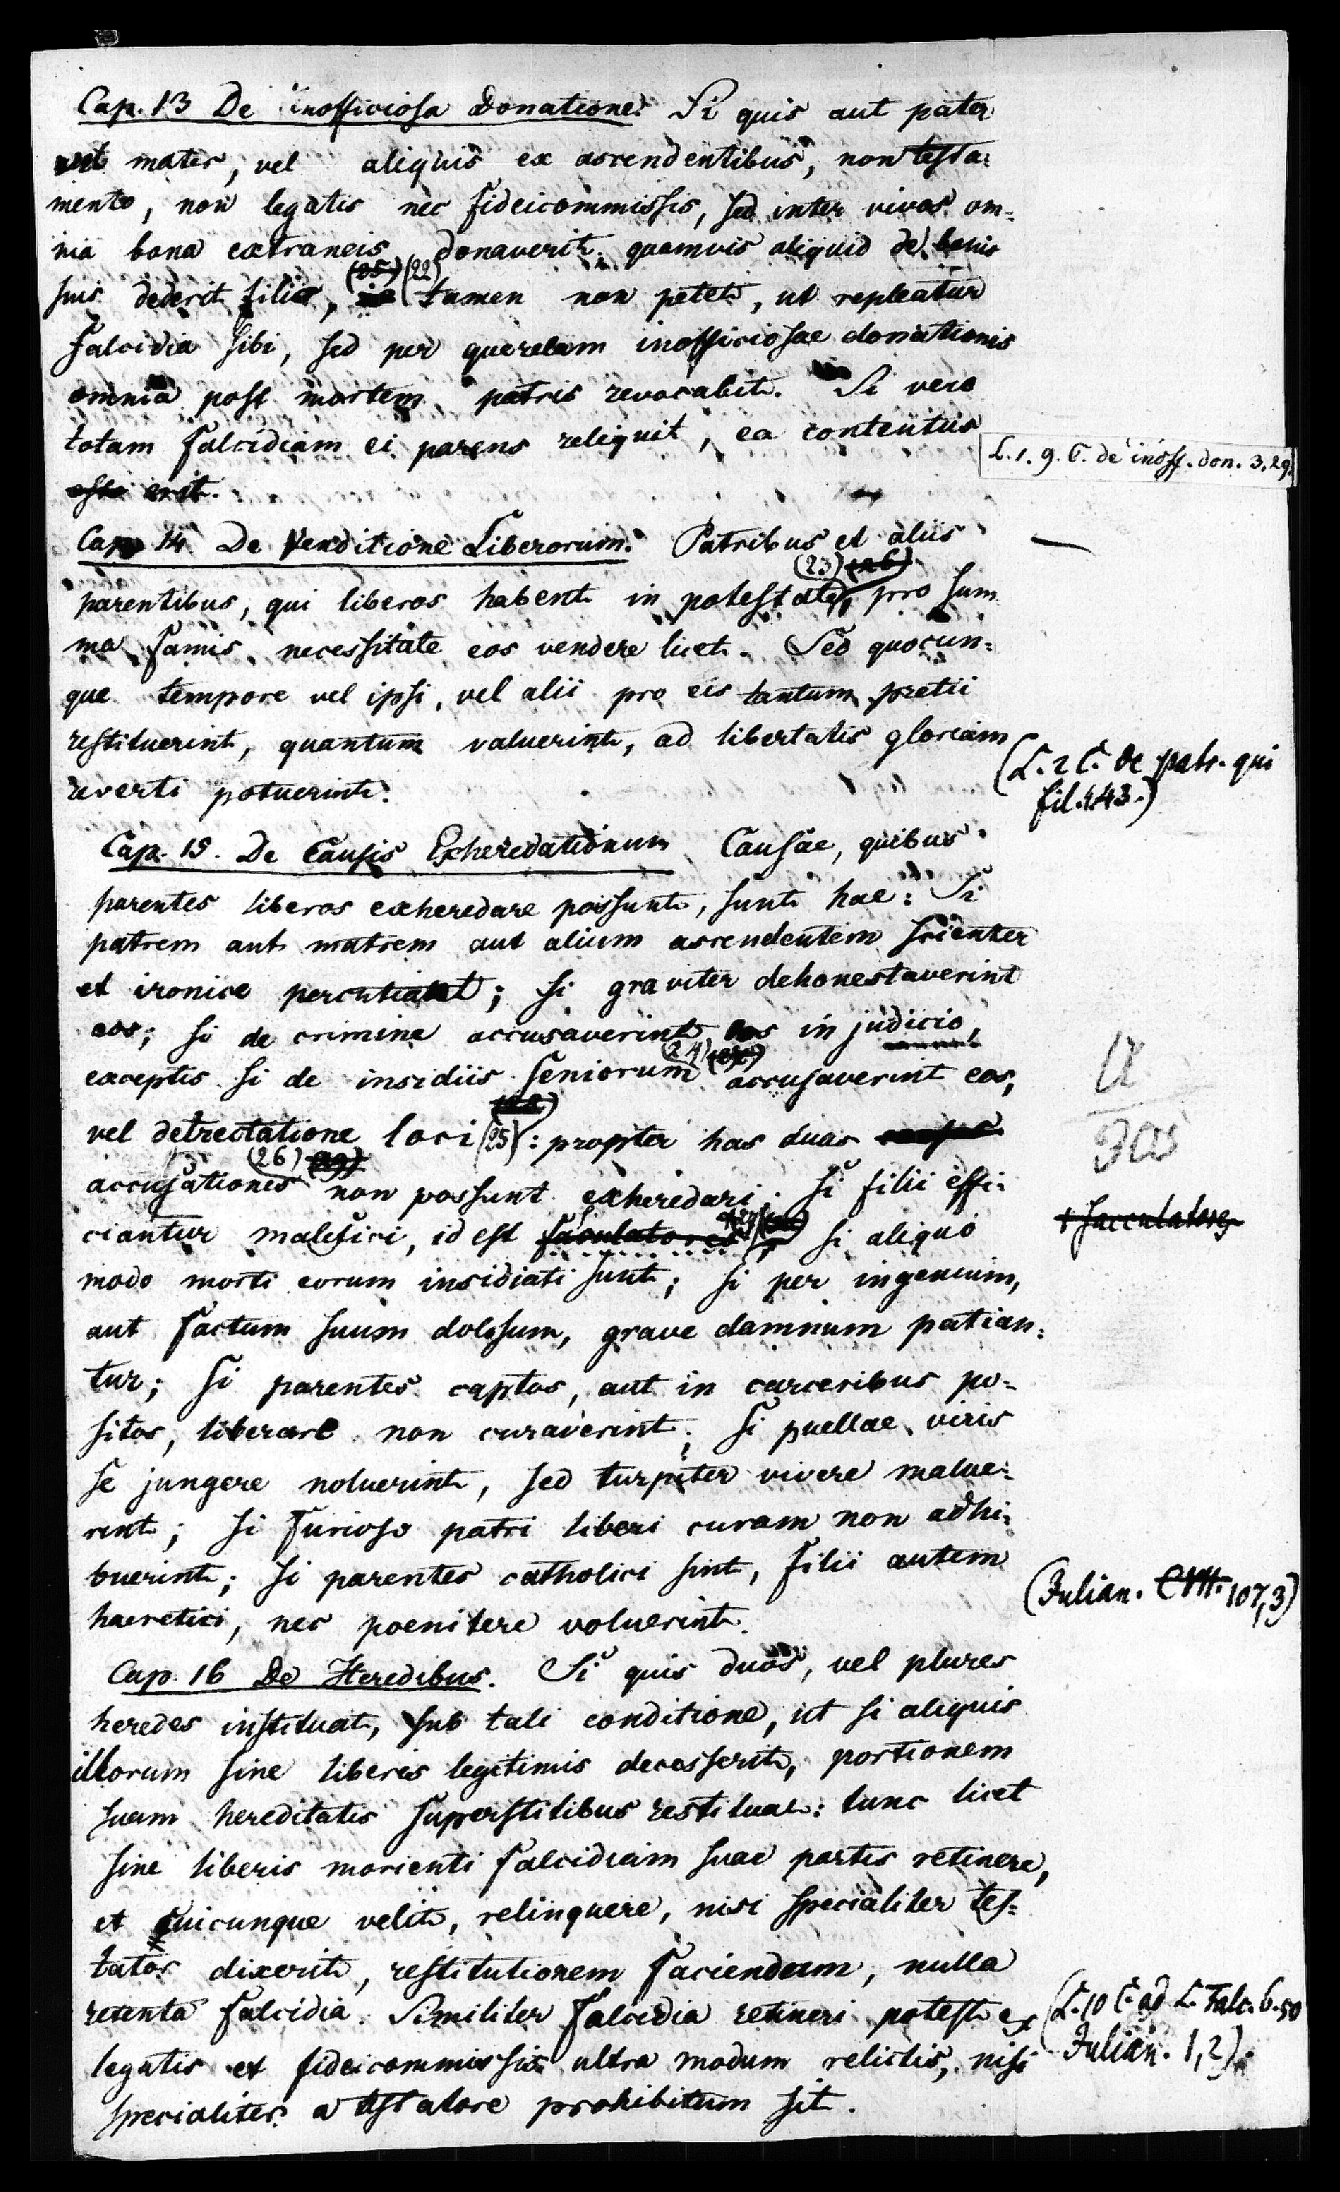 Cap. 13 De inofficiosa Donatione. Si quis aut pater
aut mater, vel aliquis ex ascendentibus, non testa=
mento, non legatis nec fideicommissis, sed inter vivos om=
nia bona extraneis donaverit, quamvis aliquid de bonis
(25) (22)
suis dederit filio, tamen non petet, ut repleatur
Falcidia sibi, sed per querelam inofficiosae donationis
omnia post mortem patris revocabit. Si vero
totam Falcidiam ei parens reliquit, ea contentus
L. 1. 9. C. de inoff. don. 3. 29.
esto erit.
Cap 14 De Venditione Liberorum. Patribus et aliis
(23) (26)
parentibus, qui liberos habent in potestate, pro sum
ma famis necessitate eos vendere licet. Sed quocun=
que tempore vel ipsi, vel alii pro eis tantum pretii
restituerint, quantum valuerint, ad libertatis gloriam
(L. 2 C. de patr. qui
fil. 4.43.)
reverti potuerint.
Cap. 15. De Causis Exheredationum Causae, quibus
parentes liberos exheredare possunt, sunt hae: Si
patrem aut matrem aut alium ascendentem scienter
et ironice percutiant; si graviter dehonestaverint
eos; si de crimine accusaverint eos in judicio,
(24)
exceptis si de insidiis seniorum accusaverint eos,
vel detrectatione loci (25): propter has duas causas
(26) (29)
accusationes non possunt exheredari. Si filii effi=
ciantur malefici, id est saculatores si aliquo
+ sacculatores
modo morti eorum insidiati sunt; si per ingenium,
aut factum suum dolosum, grave damnum patian=
tur; si parentes captos, aut in carceribus po=
sitos, liberare non curaverint; si puellae viris
se jungere noluerint, sed turpiter vivere malue=
rint; si furioso patri liberi curam non adhi=
buerint; si parentes catholici sint, filii autem
haeretici, nec poenitere voluerint.
(Julian. CVII. 107,3)
Cap. 16 De Heredibus. Si quis duos, vel plures
heredes instituat, sub tali conditione, ut si aliquis
illorum sine liberis legitimis decesserit, portionem
suam hereditatis superstitibus restituat: tunc licet
sine liberis morienti Falcidiam suae partis retinere,
et cuicunque velit, relinquere, nisi specialiter tes=
tator dixerit, restitutionem faciendam, nulla
retenta Falcidia. Similiter Falcidia retineri potest ex
(L. 10 C. ad L. Falc. 6.50
legatis et fideicommissis ultra modum relictis, nisi
Julian. 1,2).
specialiter a testatore prohibitum sit.